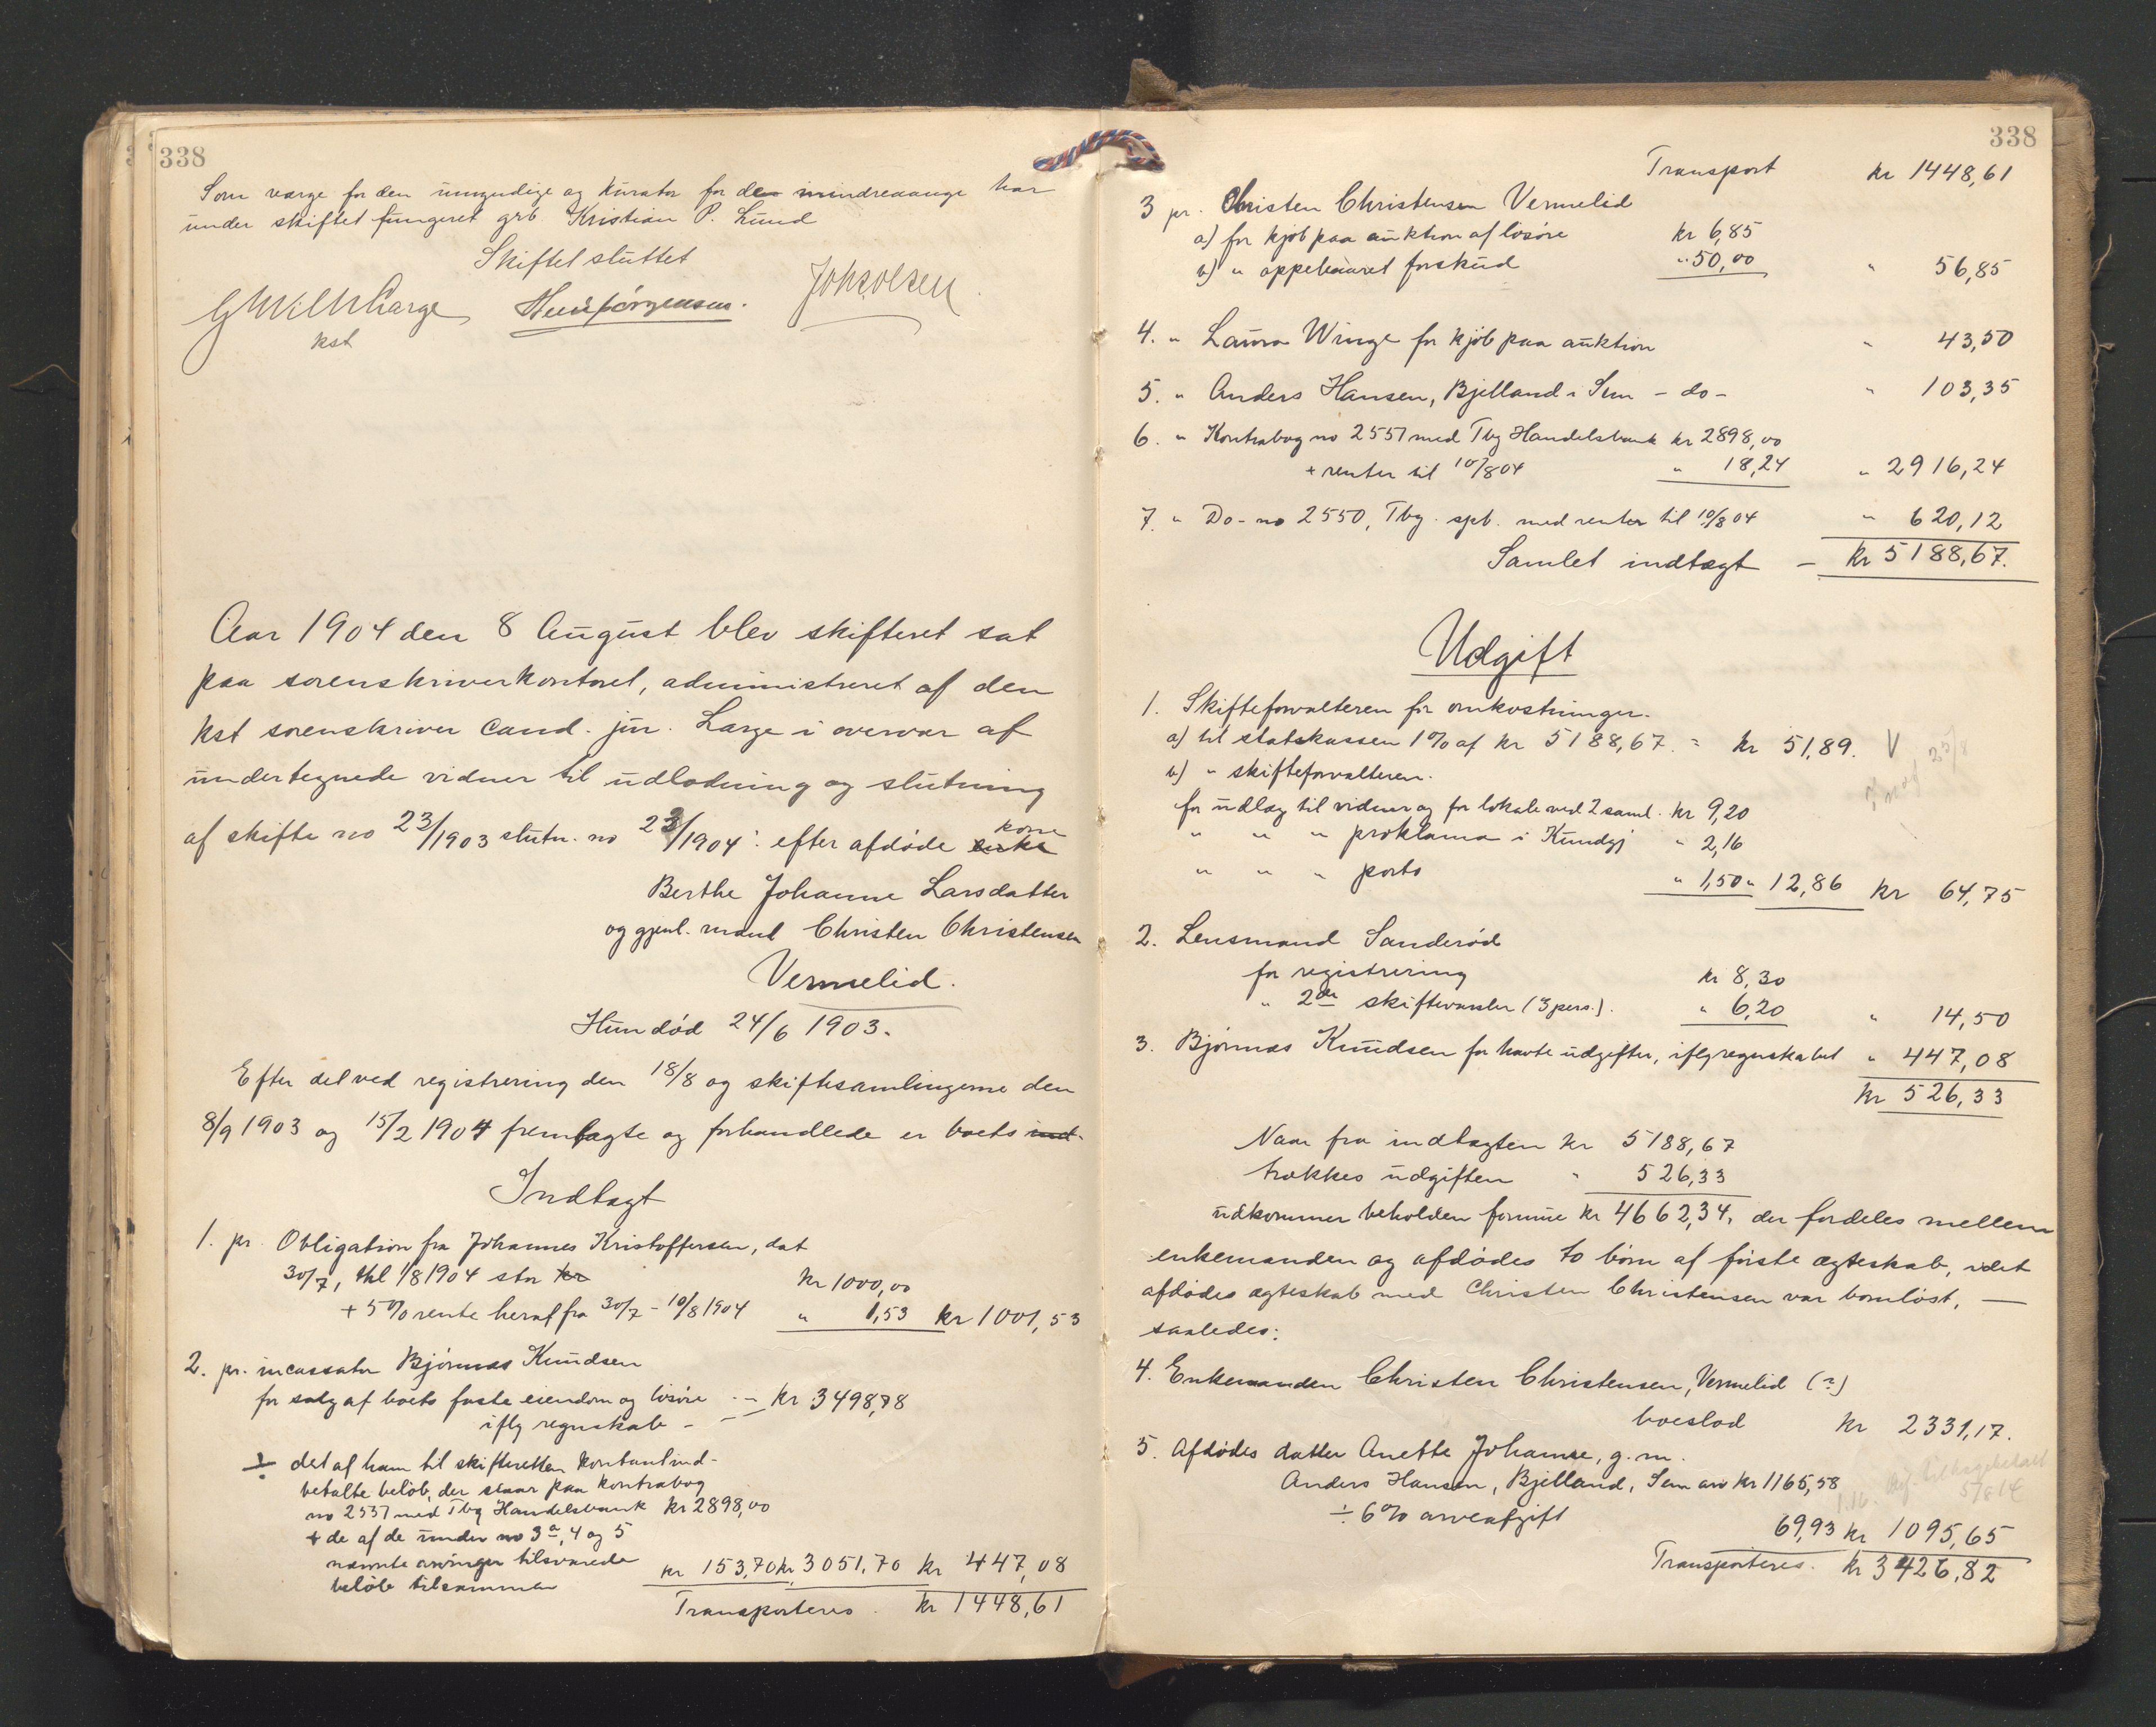 338
Som værge for den umyndige og kurator for den mindreaarige har
under skiftet fungeret grb Kristian P. Lund
Skiftet sluttet
Large
Johs Olsen
kst
Aar 1904 den 8 August blev skifteret sat
paa sorenskriverkontoret, administreret af den
kst sorenskriver cand. jur. Large i overvær af
undertegnede vidner til udlodning og slutning
af skifte no 23/1903 slutn. no 23/1904: efter afdøde enke kone
Berthe Johanne Larsdatter
og gjenl. mand Christen Christensen
Vermelid.
Hun død 24/6 1903.
Efter det ved registrering den 18/8 og skiftesamlingerne den
8/9 1903 og 15/2 1904 fremlagte og forhandlede er boets ind-
Indtægt
1. pr. Obligation fra Johannes Kristoffersen, dat
30/7, thl 1/8 1904 stor kr kr 1000,00
+ 5% rente heraf fra 30/7 - 10/8 1904 " 1,53 kr 1001,53
2. pr. incassator Bjørnaas Knudsen
for salg af boets faste eiendom og løsøre -- kr 3498,78
iflg regnskab -
÷ det af ham til skifteretten kontant ind-
betalte beløb, der staar paa kontrabog
no 2557 med Tbg Handelsbank kr 2898,00
+ de af de under no 3a, 4 og 5
nævnte arvinger tilsvarede
beløb tilsammen kr 153,70 kr 3051,70 kr 447,08
Transporteres. kr 1448,61
338
Transport kr 1448,61
3 pr. Christen Christensen Vermelid
a) for kjøb paa auktion af løsøre kr 6,85
b) " oppebaaret forskud " 50,00 " 56,85
4. " Laura Winge for kjøb paa auktion " 43,50
5. " Anders Hansen, Bjelland i Sem - do - " 103,35
6. " Kontrabog no 2557 med Tbg Handelsbank kr 2898,00
+ renter til 10/8 04 " 18,24 " 2916,24
7. " Do- no 2550, Tbg. spb. med renter til 10/8 04 " 620,12
Samlet indtægt - kr 5188,67.
Udgift
1. Skifteforvalteren for omkostninger.
a) til statskassen 1% af kr 5188,67. = kr 51,89. V
b) " skifteforvalteren.
for udlæg til vidner og for lokale ved 2 saml. kr 9,20
" " " proklama i Kundgj " 2,16
" " " porto " 1,50 " 12,86 kr 64,75
2. Lensmand Sanderød
for registrering kr 8,30
" 2de skiftevarsler (3 pers.). " 6,20 " 14,50
3. Bjørnaas Knudsen for havte udgifter, iflg regnskabet " 447,08
kr 526,33
Naar fra indtægten kr 5188,67
trækkes udgiften " 526,33
udkommer beholden formue kr 4662,34, der fordeles mellem
enkemanden og afdødes to børn af første ægteskab, idet
afdødes ægteskab med Christen Christensen var barnløst, —
saaledes:
4. Enkemanden Christen Christensen, Vermelid (?)
boeslod kr 2331,17.
5. Afdødes datter Anette Johanne, g. m.
Anders Hansen, Bjelland, Sem arv kr 1165,58
÷ 6% arveafgift 69,93 kr 1095,65
Transporteres. kr 3426,82